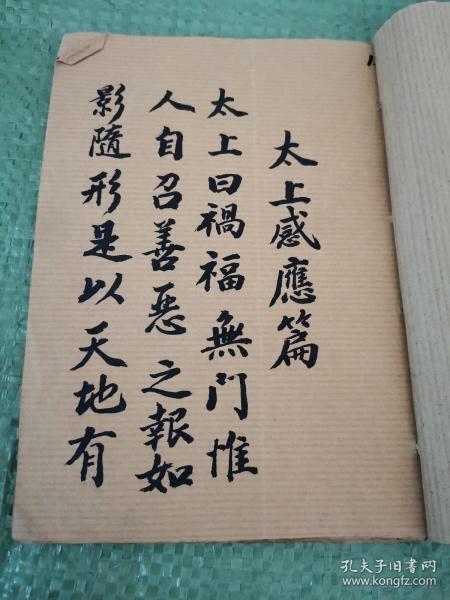 太上感應篇
太上曰禍福無門惟
人自召善惡之報如
影隨形是以天地有
孔夫子旧书网
www.kongfz.com